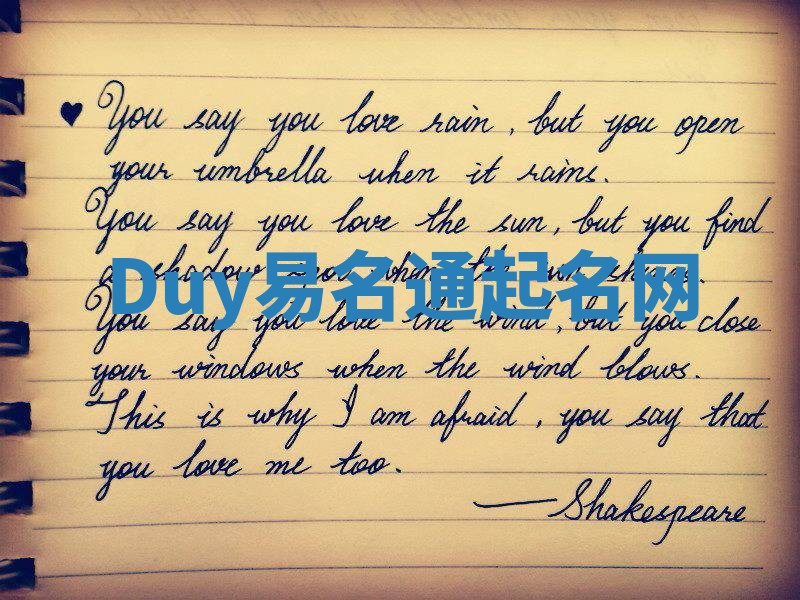 ♥ You say you love rain, but you open
your umbrella when it rains.
You say you love the sun, but you find
a shadow spot when the sun shines.
Duy易名通起名网
You say you love the wind, but you close
your windows when the wind blows.
This is why I am afraid, you say that
you love me too.
—Shakespeare